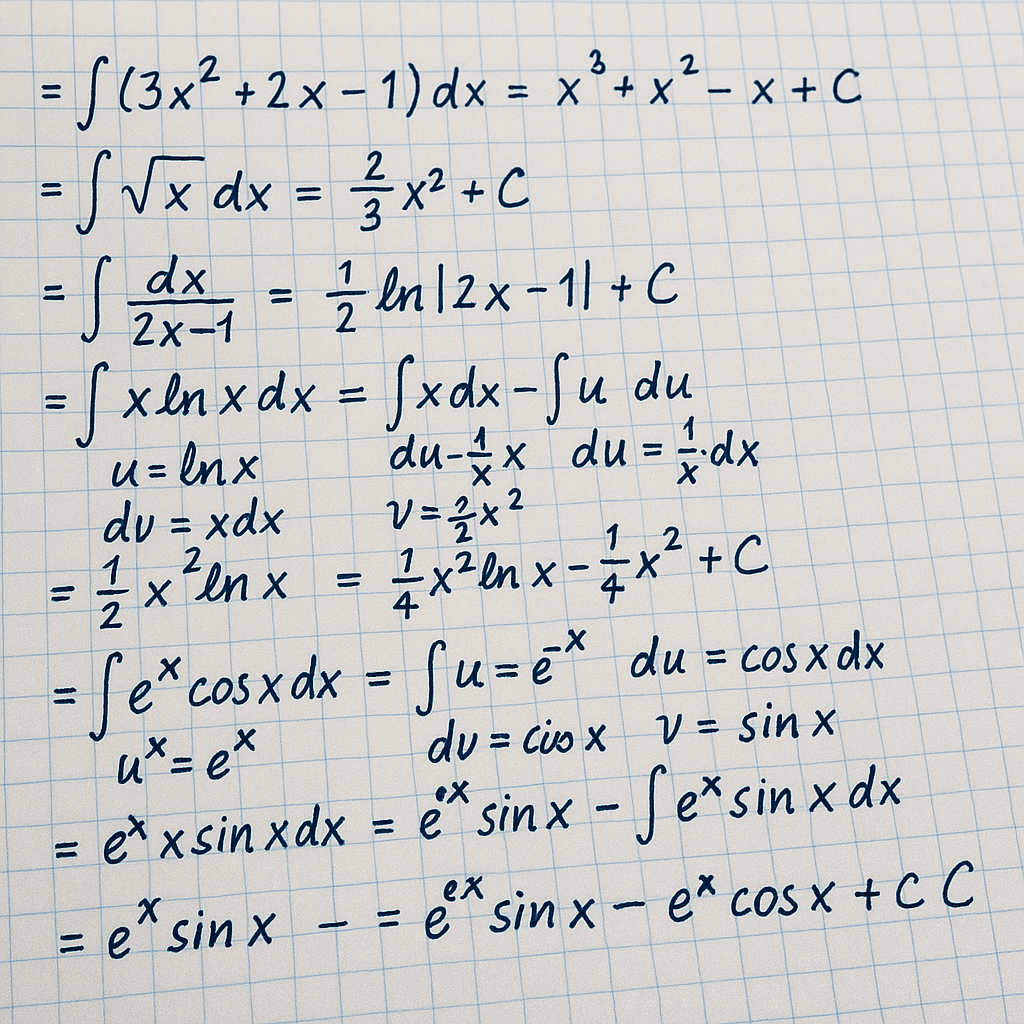 = ∫ (3x² + 2x − 1) dx = x³ + x² − x + C
= ∫ √x dx = 2/3 x² + C
= ∫ dx/(2x−1) = 1/2 ln|2x − 1| + C
= ∫ x ln x dx = ∫ x dx − ∫ u du
u = ln x du − 1/x x du = 1/x · dx
dv = xdx v = 2/2 x²
= 1/2 x² ln x = 1/4 x² ln x − 1/4 x² + C
= ∫ eˣ cos x dx = ∫ u = e⁻ˣ du = cos x dx
uˣ = eˣ dv = x v = sin x
= eˣ x sin x dx = e^{ex} sin x − ∫ eˣ sin x dx
= eˣ sin x − = e^{ex} sin x − eˣ cos x + c C